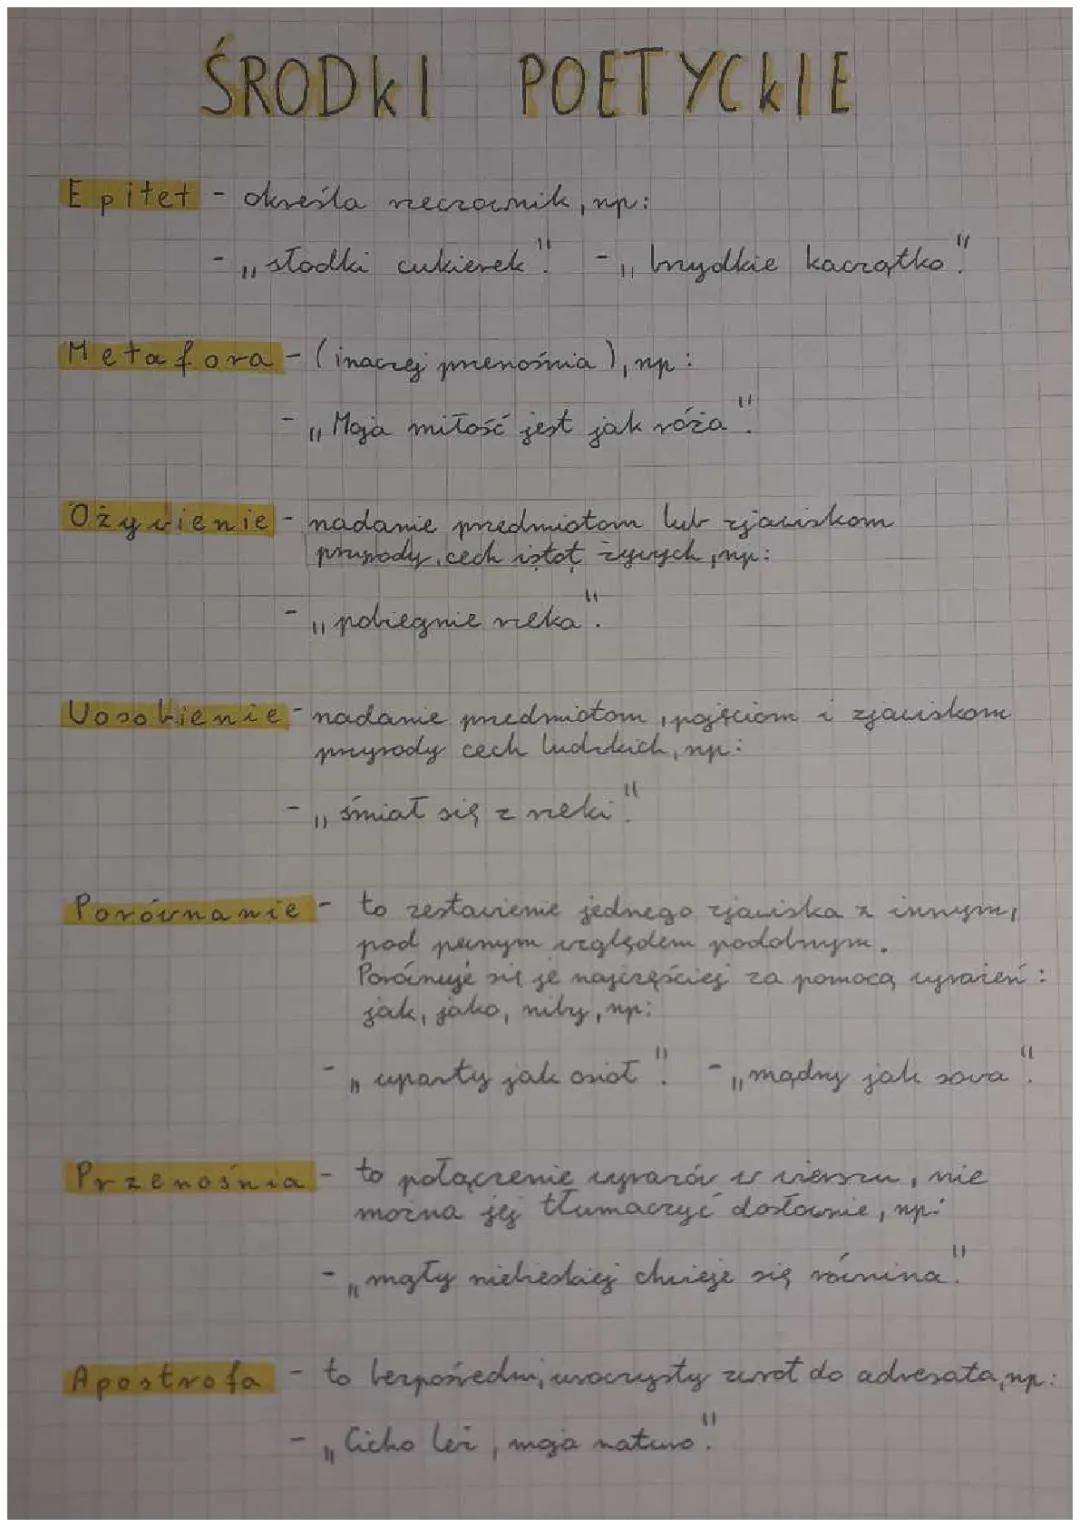 ŚRODKI POETYCKIE
Epitet - określa rzeczownik, np:
- „słodki cukierek". - „brzydkie kaczątko".
Metafora - (inaczej przenośnia), np:
- „Moja miłość jest jak róża".
Ożywienie - nadanie przedmiotom lub zjawiskom
przyrody, cech istot żywych, np:
- „pobiegnie rzeka".
Uosobienie - nadanie przedmiotom, pojęciom i zjawiskom
przyrody cech ludzkich, np:
- „śmiał się z rzeki".
Porównanie - to zestawienie jednego zjawiska z innym,
pod pewnym względem podobnym.
Porównuje się je najczęściej za pomocą wyrażeń:
jak, jako, niby, np:
- „uparty jak osioł". - „mądry jak sowa".
Przenośnia - to połączenie wyrazów w wierszu, nie
można jej tłumaczyć dosłownie, np:
- „mgły niebieskiej chwieje się równina".
Apostrofa - to bezpośredni, uroczysty zwrot do adresata, np:
- „Cicho leż, moja naturo".